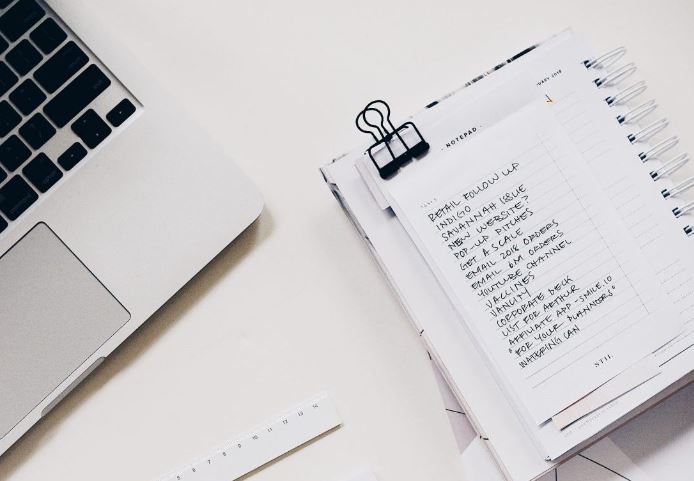 NOTEPAD
RETAIL FOLLOW UP
INDIGO
SAVANNAH ISSUE
NEW WEBSITE?
POP-UP PITCHES
GET A SCALE
EMAIL 2018 ORDERS
EMAIL 6M ORDERS
YOUTUBE CHANNEL
VACCINES
VANCITY
CORPORATE DECK
LIST FOR ARTHUR
AFFILIATE APP - SMILE.IO
"FOR YOUR PLANNERS"
WATERING CAN
5 6 7 8 9 10 11 12 13 14